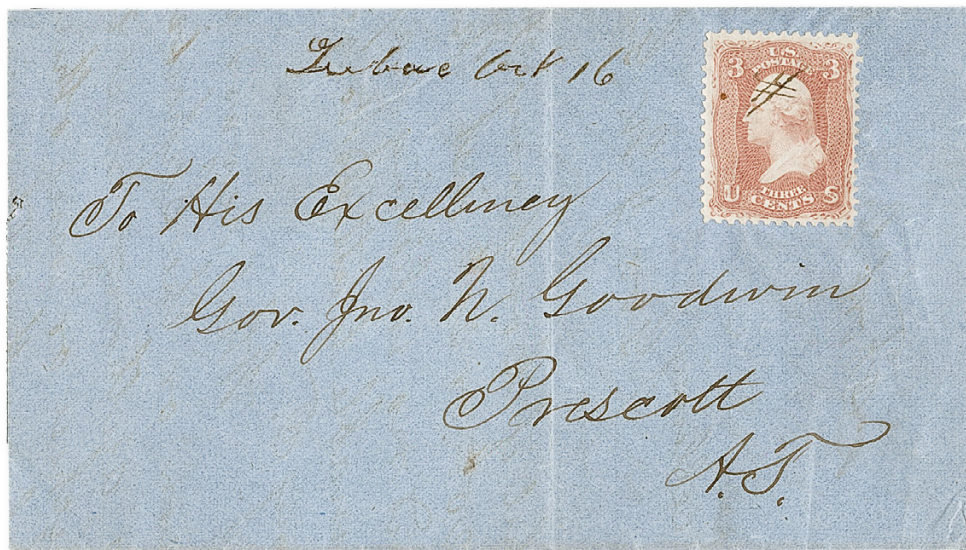 Tubac Oct 16
U.S.
POSTAGE
3 3
#
THREE
U CENTS S
To His Excellency
Gov. Jno. N. Goodwin
Prescott
A.T.